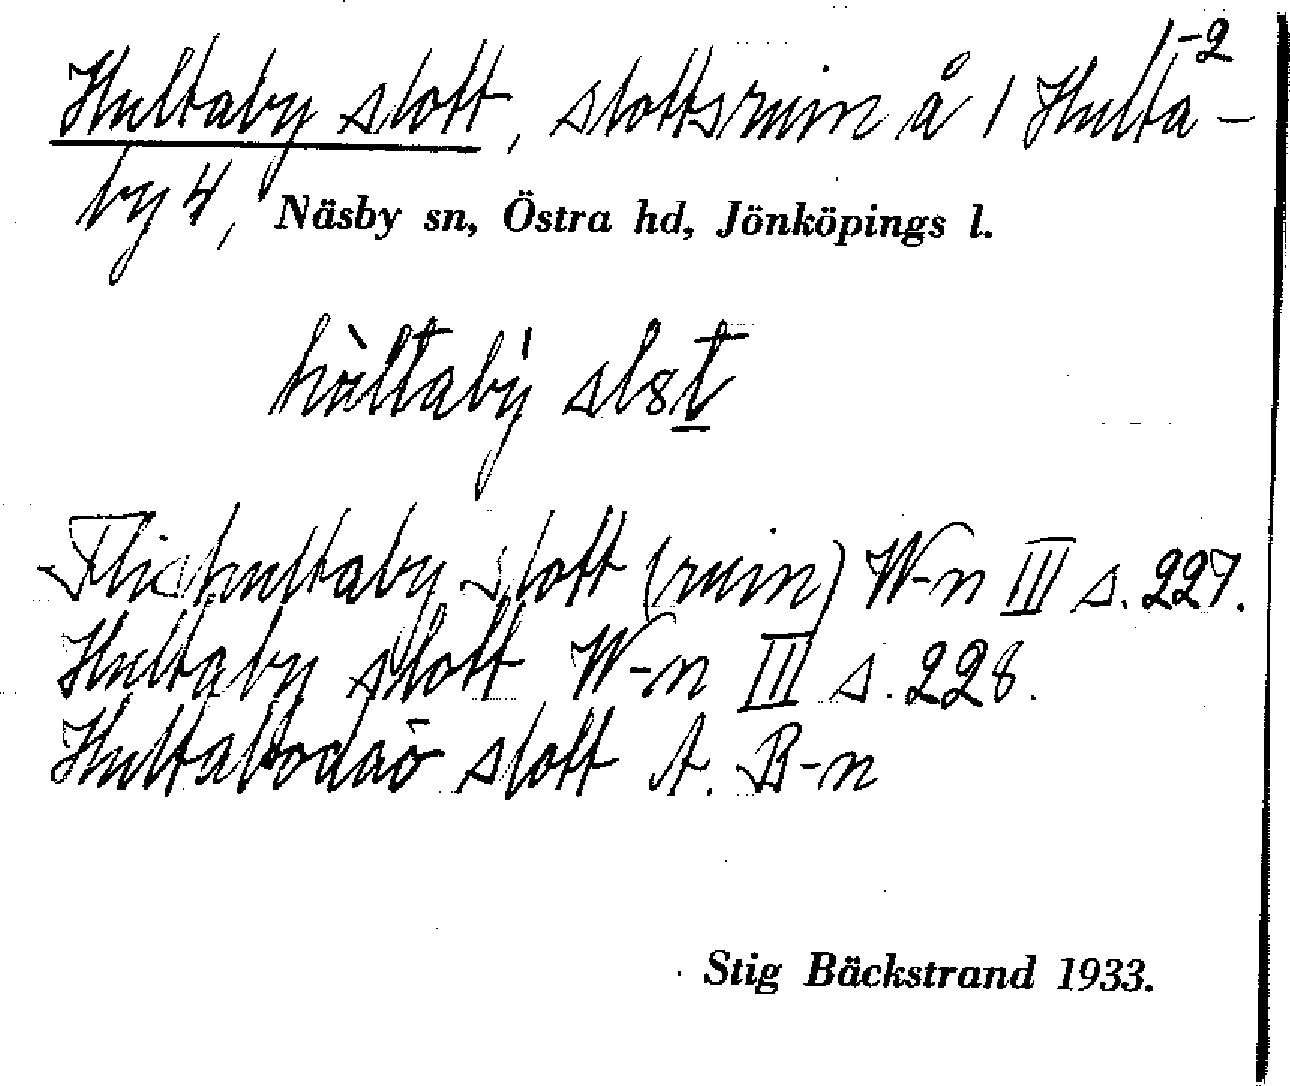 1-2
Hultaby slott, slottsruin å 1 Hulta-
by 4, Näsby sn, Östra hd, Jönköpings l.
hùltabý sl8t
Flishultaby slott (ruin) W-n III s. 227.
Hultaby slott W-n III s. 228.
slott A. B-n
Stig Bäckstrand 1933.